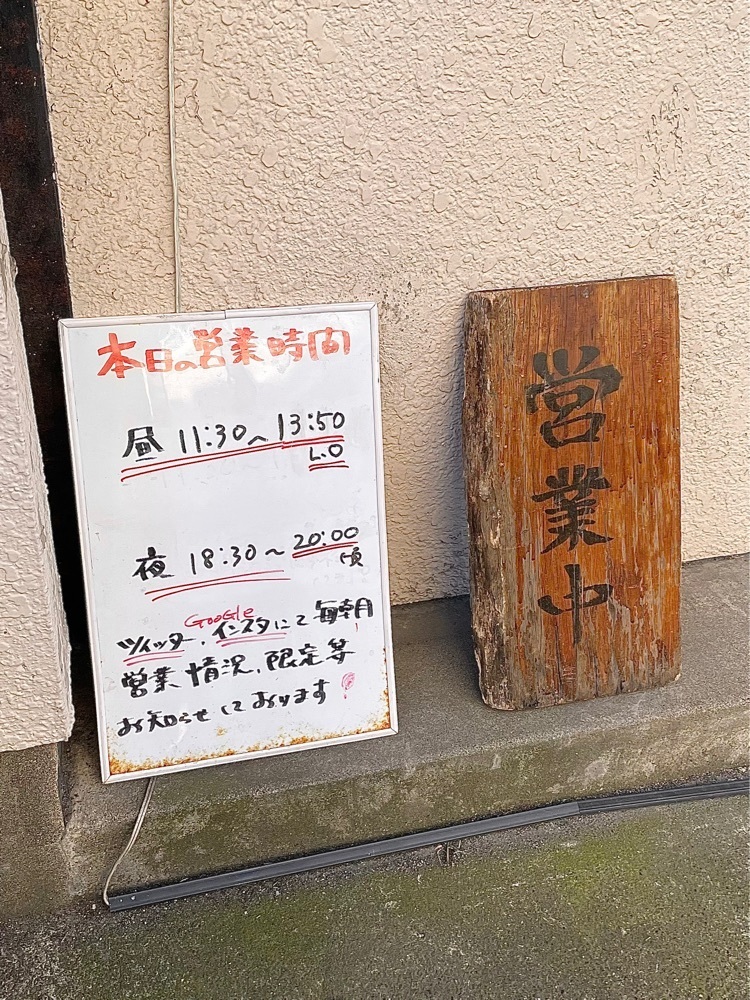 本日の営業時間
昼 11:30~13:50
L.O
夜 18:30~20:00
頃
Google
ツイッター、インスタにて毎朝
営業情況、限定等
お知らせしております
営業中